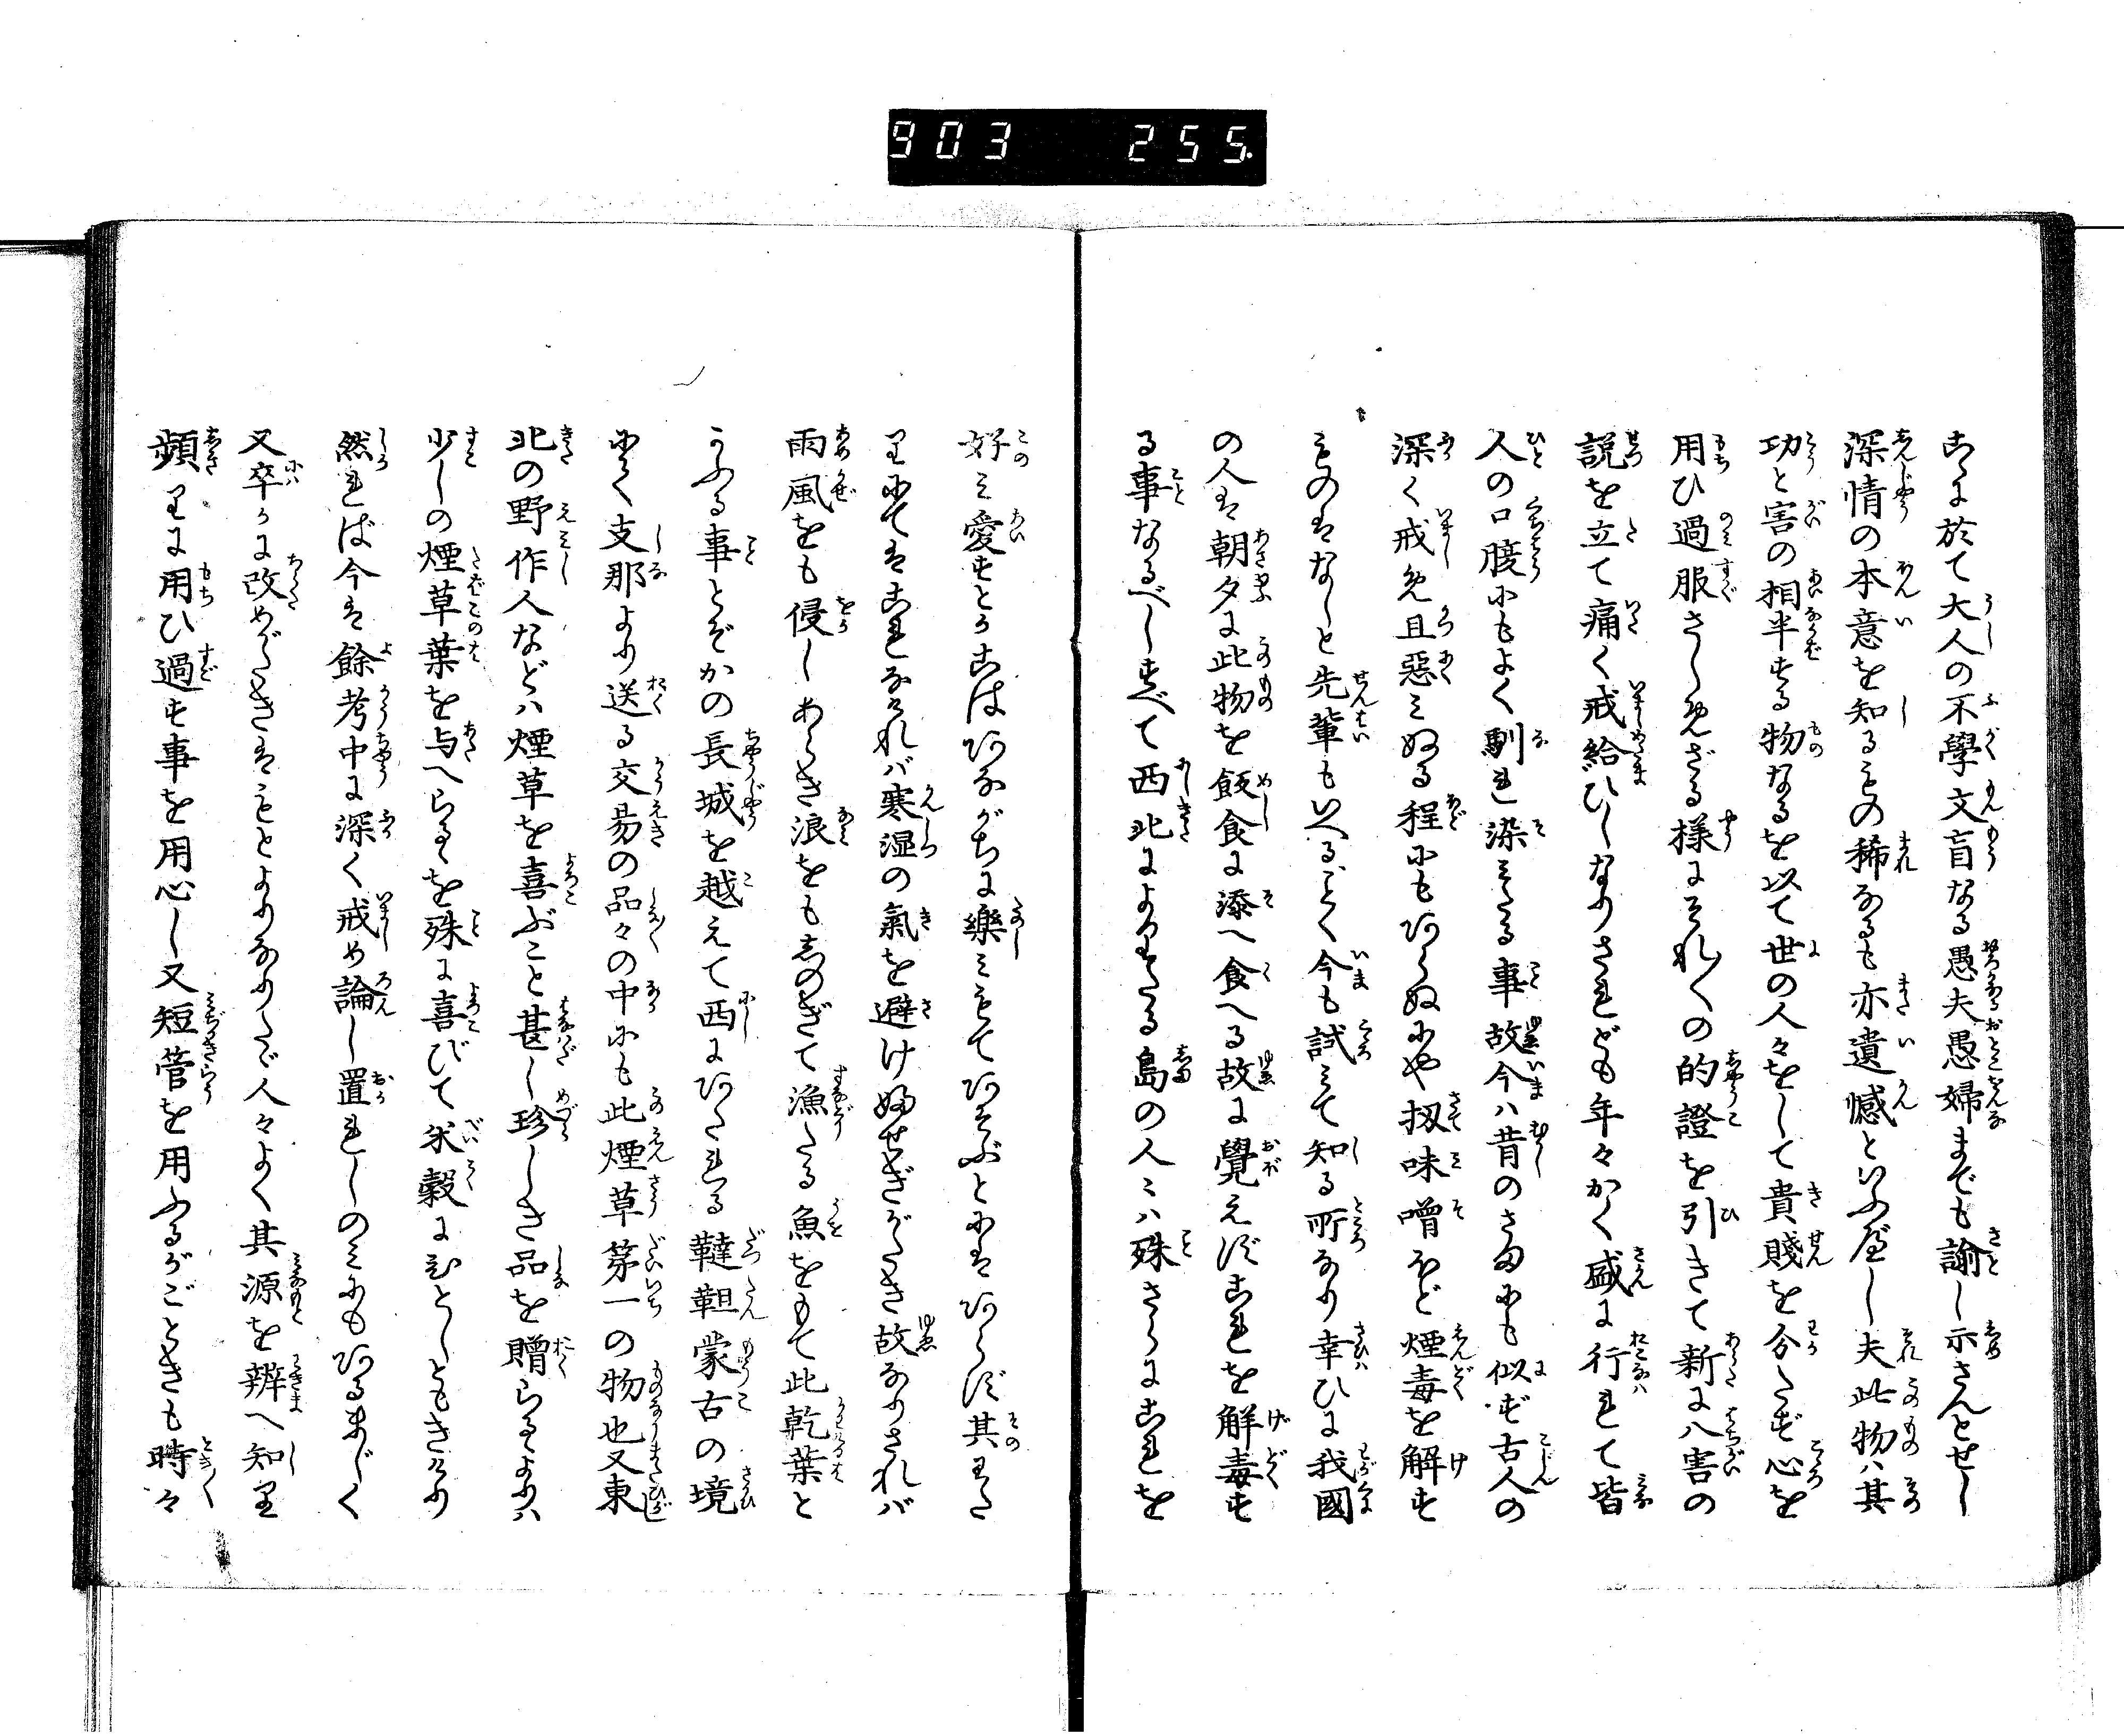 903 255.
こゝに於て大人の不學文盲なる愚夫愚婦までも諭し示さんとせし
深情の本意を知るもの稀なるも亦遺憾といふ屋し夫此物ハ其
功と害の相半する物なるを以て世の人々をして貴賤を分たず心を
用ひ過服さしめざる様にそれ〳〵の的證を引きて新に八害の
説を立て痛く戒給ひしなりされども年々かく盛に行れて皆
人の口腹にもよく馴れ染みたる事故今ハ昔のさまにも似ず古人の
深く戒め且惡みぬる程にもあらぬにや扨味噌ほど煙毒を解す
ものはなしと先輩もいへるごとく今も試みて知る所なり幸ひに我國
の人は朝夕に此物を飯食に添へ食へる故に覺えずこれを解毒す
る事なるべしすべて西北によりたる島の人々ハ殊さらにこれを
好ミ愛すとかこはあながちに樂ミもてあそぶとにはあらず其わた
りにてはこれなければ寒湿の氣を避け婦せぎがたき故なりされバ
雨風をも侵しあらき浪をもしのぎて漁たる魚をもて此乾葉と
かふる事とぞかの長城を越えて西にあたれる韃靼蒙古の境
にて支那より送る交易の品々の中にも此煙草第一の物也又東
北の野作人などハ煙草を喜ぶこと甚し珍しき品を贈らるゝよりハ
少しの煙草葉を与へらるゝを殊に喜びて米穀にひとしともきけり
然れば今は餘考中に深く戒め論し置れしのミにもあるまじく
又卒かに改めがたきはもとよりなりたゞ人々よく其源を辨へ知り
頻りに用ひ過す事を用心し又短管を用ふるがごときも時々